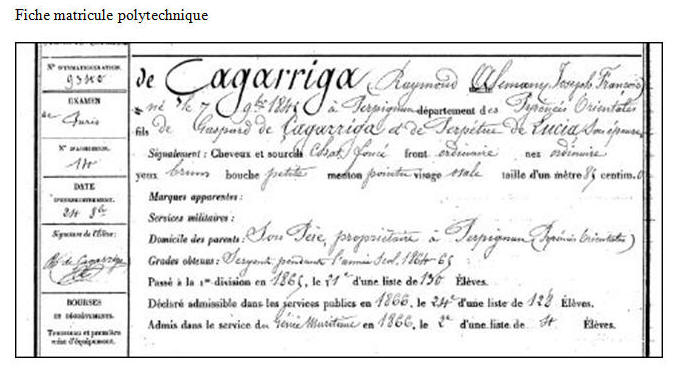 Fiche matricule polytechnique
N° D'IMMATRICULATION.
9340
EXAMEN
de Paris
N° D'ADMISSION.
14
DATE
D'ENREGISTREMENT.
24 8bre
Signature de l'Élève:
R. de Çagarriga
BOURSES
ET DÉGRÈVEMENTS.
Trousseau et première
mise d'équipement.
de Çagarriga (Raymond Alemany Joseph François)
né le 7 9bre 1845 à Perpignan département des Pyrénées Orientales
fils de Gaspard de Çagarriga et de Perpétue de Lucia Son épouse
Signalement : Cheveux et sourcils Chat. foncé front ordinaire nez ordinaire
yeux bruns bouche petite menton pointu visage ovale taille d'un mètre 85 centim. 0
Marques apparentes :
Services militaires :
Domicile des parents : Son Père, propriétaire à Perpignan (Pyrénées Orientales)
Grades obtenus : Sergent pendant l'année scol. 1864-65
Passé à la 1re division en 1865, le 21e d'une liste de 130 Élèves.
Déclaré admissible dans les services publics en 1866, le 24e d'une liste de 128 Élèves.
Admis dans le service du Génie Maritime en 1866, le 2e d'une liste de 4 Élèves.